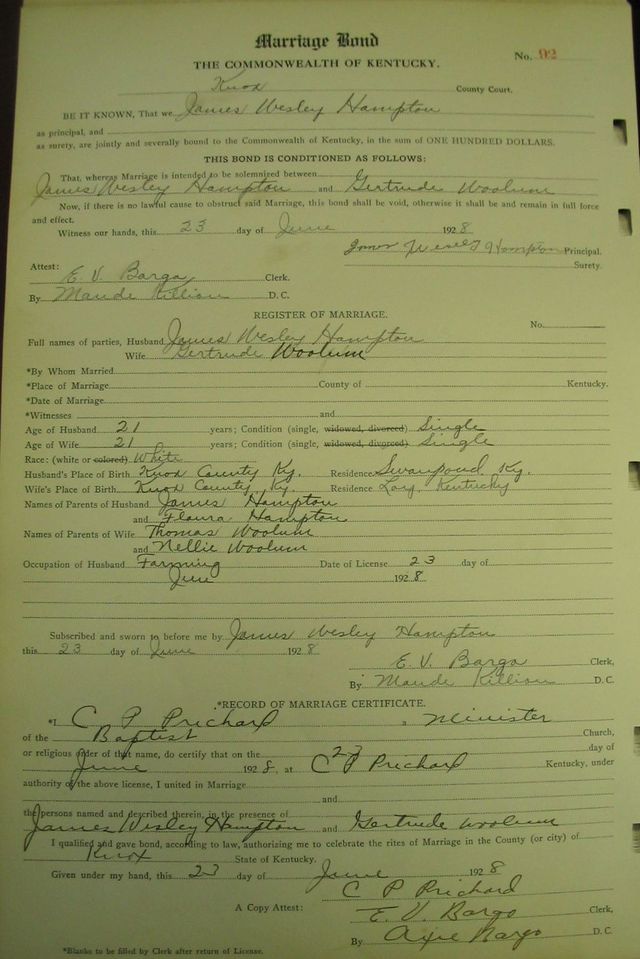 Marriage Bond
No. 92
THE COMMONWEALTH OF KENTUCKY.
Knox County Court.
BE IT KNOWN, That we James Wesley Hampton
as principal, and
as surety, are jointly and severally bound to the Commonwealth of Kentucky, in the sum of ONE HUNDRED DOLLARS.
THIS BOND IS CONDITIONED AS FOLLOWS:
That, whereas Marriage is intended to be solemnized between
James Wesley Hampton and Gertrude Woolum
Now, if there is no lawful cause to obstruct said Marriage, this bond shall be void, otherwise it shall be and remain in full force
and effect.
Witness our hands, this 23 day of June 1928
James Wesley Hampton Principal.
Surety.
Attest:
E. V. Bargo Clerk.
By Maude Killion D. C.
REGISTER OF MARRIAGE.
No.
Full names of parties, Husband James Wesley Hampton
Wife Gertrude Woolum
*By Whom Married
*Place of Marriage County of Kentucky.
*Date of Marriage
*Witnesses and
Age of Husband 21 years; Condition (single, widowed, divorced) Single
Age of Wife 21 years; Condition (single, widowed, divorced) Single
Race: (white or colored) White
Husband's Place of Birth Knox County Ky. Residence Swanpond Ky.
Wife's Place of Birth Knox County Ky. Residence Kentucky
Names of Parents of Husband James Hampton
and Flaura Hampton
Names of Parents of Wife Thomas Woolum
and Nellie Woolum
Occupation of Husband Farming Date of License 23 day of
June 1928
Subscribed and sworn to before me by James Wesley Hampton
this 23 day of June 1928
E. V. Bargo Clerk,
By Maude Killion D. C.
*RECORD OF MARRIAGE CERTIFICATE.
*I C P Prichard a Minister
of the Baptist Church,
or religious order of that name, do certify that on the 23 day of
June 1928, at C P Prichard Kentucky, under
authority of the above license, I united in Marriage
and
the persons named and described therein, in the presence of
James Wesley Hampton and Gertrude Woolum
I qualified and gave bond, according to law, authorizing me to celebrate the rites of Marriage in the County (or city) of
Knox State of Kentucky.
Given under my hand, this 23 day of June 1928
C P Prichard
A Copy Attest: E. V. Bargo Clerk,
By Bargo D. C.
*Blanks to be filled by Clerk after return of License.